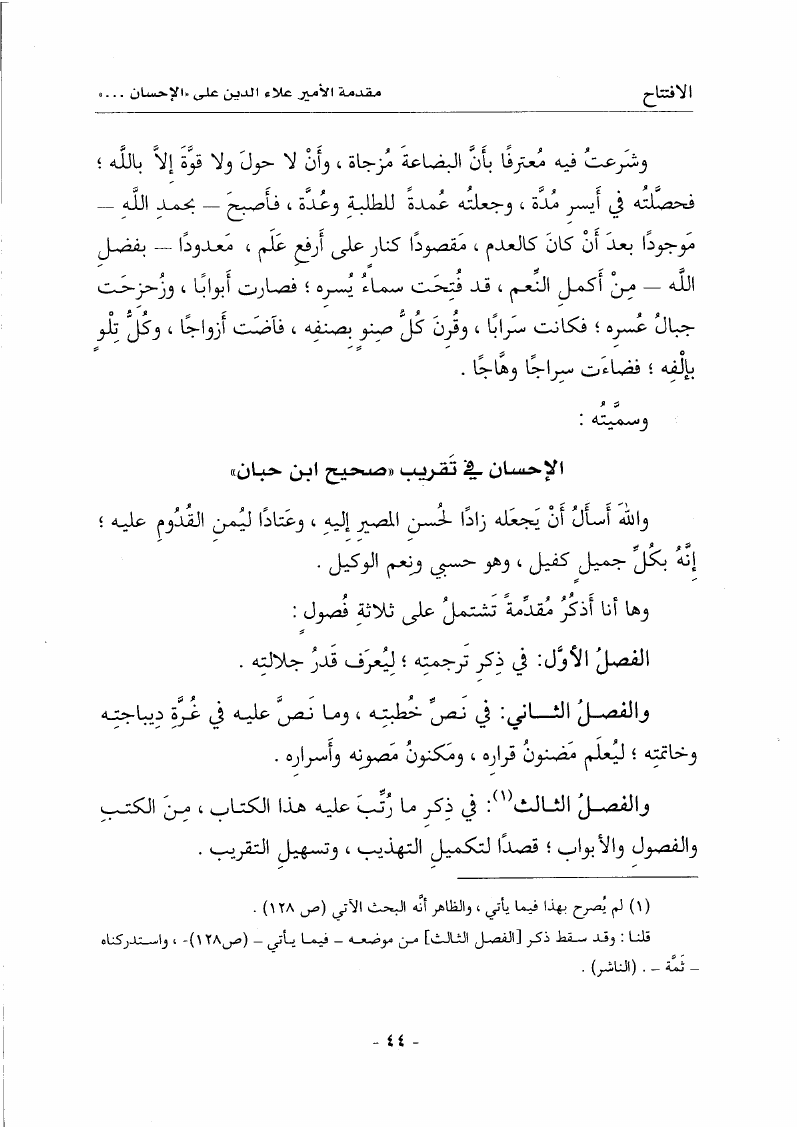 الافتتاح
مقدمة الأمير علاء الدين على «الإحسان ...»
وشَرعتُ فيه مُعترفًا بأنَّ البضاعةَ مُزجاة ، وأنْ لا حولَ ولا قوَّةَ إلاَّ باللَّه ؛
فحصَّلتُه في أيسرِ مُدَّة ، وجعلتُه عُمدةً للطلبةِ وعُدَّة ، فأصبحَ – بحمدِ اللَّه –
موجودًا بعدَ أنْ كانَ كالعدم ، مَقصودًا كنارٍ على أرفعِ عَلَم ، مَعدودًا – بفضلِ
اللَّه – مِنْ أكملِ النِّعم ، قد فُتِحَت سماءُ يُسره ؛ فصارت أبوابًا ، وزُحزِحَت
جبالُ عُسره ؛ فكانت سَرابًا ، وقُرِن كلُّ صنوٍ بصنفه ، فآضَت أزواجًا ، وكلُّ تِلْوٍ
بإلْفِه ؛ فضاءَت سراجًا وهَّاجًا .
وسمَّيتُه :
الإحسان في تَقريب «صحيح ابن حبان»
واللهَ أسألُ أنْ يَجعَله زادًا لحُسنِ المصيرِ إليه ، وعَتادًا ليُمنِ القُدُومِ عليه ؛
إنَّهُ بكلِّ جميلٍ كفيل ، وهو حسبي ونعم الوكيل .
وها أنا أذكُرُ مُقدِّمةً تَشتملُ على ثلاثةِ فُصولٍ :
الفصلُ الأوَّل: في ذِكرِ تَرجمتِه ؛ ليُعرَف قَدرُ جلالتِه .
والفصلُ الثاني: في نَصِّ خُطبتِه ، وما نَصَّ عليه في غُرَّةِ ديباجتِه
وخاتمتِه ؛ ليُعلَم مَضنونُ قراره ، ومَكنونُ مَصونه وأَسراره .
والفصلُ الثالث(١): في ذِكرِ ما رُتِّبَ عليه هذا الكتاب ، مِنَ الكتبِ
والفصولِ والأبواب ؛ قصدًا لتكميلِ التهذيب ، وتسهيلِ التقريب .
(١) لم يُصرح بهذا فيما يأتي ، والظاهر أنَّه البحث الآتي (ص ١٢٨) .
قلنا : وقد سقط ذكر [الفصل الثالث] من موضعه – فيما يأتي – (ص١٢٨)- ، واستدركناه
– ثَمَّة – . (الناشر) .
- ٤٤ -